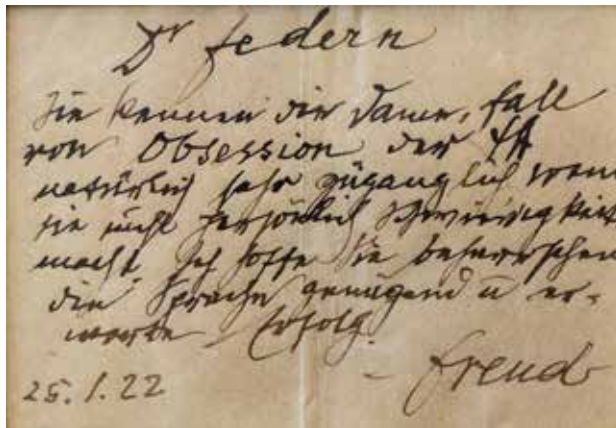 Dr Federn
Sie kennen die Dame, Fall
von Obsession der ΨA
natürlich sehr zugänglich wenn
sie nicht persönlich Schwierigkeit
macht. Ich hoffe Sie beherrschen
die Sprache genügend u er-
warte Erfolg.
– Freud
25.1.22